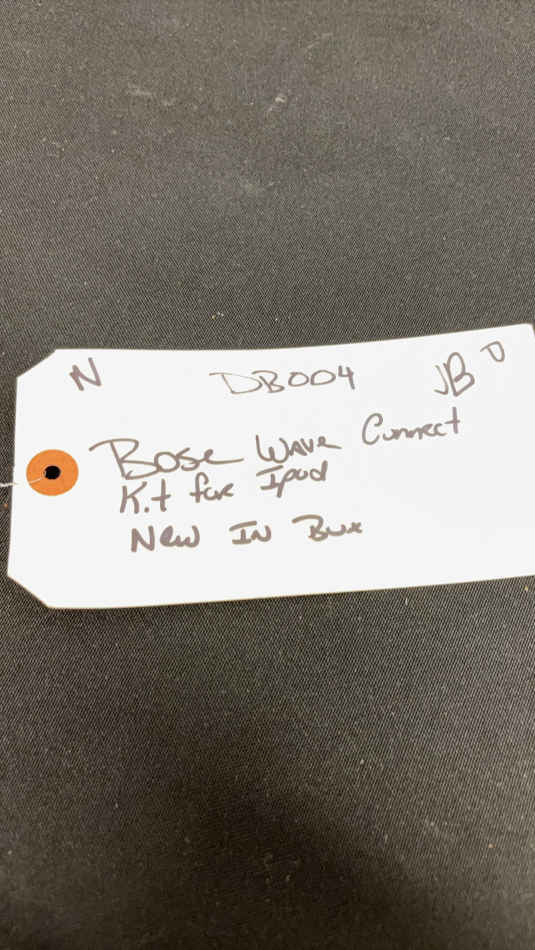 N DB004 JB D
Bose Wave Connect
Kit for Ipod
New In Box